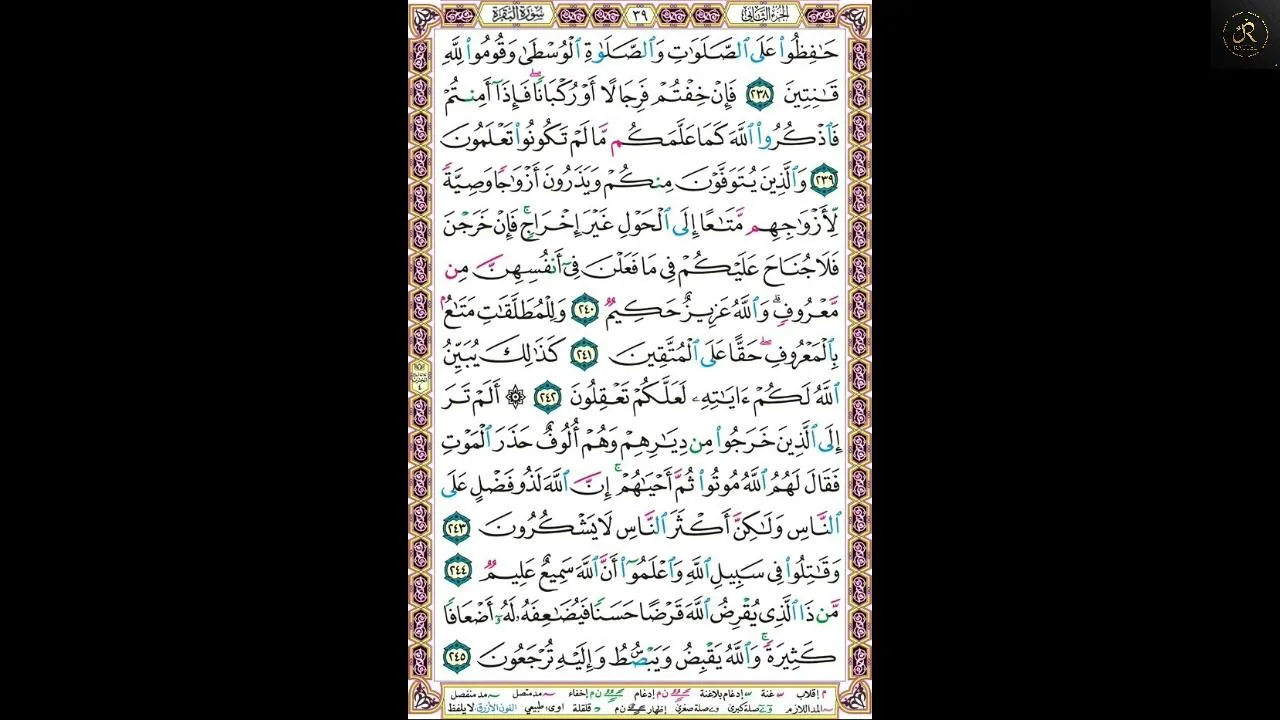 الجزء الثاني ٣٩ سورة البقرة
حَـٰفِظُوا۟ عَلَى ٱلصَّلَوَٰتِ وَٱلصَّلَوٰةِ ٱلْوُسْطَىٰ وَقُومُوا۟ لِلَّهِ
قَـٰنِتِينَ ٢٣٨ فَإِنْ خِفْتُمْ فَرِجَالًا أَوْ رُكْبَانًا ۖ فَإِذَآ أَمِنتُمْ
فَٱذْكُرُوا۟ ٱللَّهَ كَمَا عَلَّمَكُم مَّا لَمْ تَكُونُوا۟ تَعْلَمُونَ
٢٣٩ وَٱلَّذِينَ يُتَوَفَّوْنَ مِنكُمْ وَيَذَرُونَ أَزْوَٰجًا وَصِيَّةً
لِّأَزْوَٰجِهِم مَّتَـٰعًا إِلَى ٱلْحَوْلِ غَيْرَ إِخْرَاجٍ ۚ فَإِنْ خَرَجْنَ
فَلَا جُنَاحَ عَلَيْكُمْ فِى مَا فَعَلْنَ فِىٓ أَنفُسِهِنَّ مِن
مَّعْرُوفٍ ۗ وَٱللَّهُ عَزِيزٌ حَكِيمٌ ٢٤٠ وَلِلْمُطَلَّقَـٰتِ مَتَـٰعٌۢ
بِٱلْمَعْرُوفِ ۖ حَقًّا عَلَى ٱلْمُتَّقِينَ ٢٤١ كَذَٰلِكَ يُبَيِّنُ
ٱللَّهُ لَكُمْ ءَايَـٰتِهِۦ لَعَلَّكُمْ تَعْقِلُونَ ٢٤٢ ۞ أَلَمْ تَرَ
إِلَى ٱلَّذِينَ خَرَجُوا۟ مِن دِيَـٰرِهِمْ وَهُمْ أُلُوفٌ حَذَرَ ٱلْمَوْتِ
فَقَالَ لَهُمُ ٱللَّهُ مُوتُوا۟ ثُمَّ أَحْيَـٰهُمْ ۚ إِنَّ ٱللَّهَ لَذُو فَضْلٍ عَلَى
ٱلنَّاسِ وَلَـٰكِنَّ أَكْثَرَ ٱلنَّاسِ لَا يَشْكُرُونَ ٢٤٣
وَقَـٰتِلُوا۟ فِى سَبِيلِ ٱللَّهِ وَٱعْلَمُوٓا۟ أَنَّ ٱللَّهَ سَمِيعٌ عَلِيمٌ ٢٤٤
مَّن ذَا ٱلَّذِى يُقْرِضُ ٱللَّهَ قَرْضًا حَسَنًا فَيُضَـٰعِفَهُۥ لَهُۥٓ أَضْعَافًا
كَثِيرَةً ۚ وَٱللَّهُ يَقْبِضُ وَيَبْصُۜطُ وَإِلَيْهِ تُرْجَعُونَ ٢٤٥
م إقلاب غنة إدغام بلاغنة ن م إدغام ن م إخفاء مد متصل مد منفصل
المد اللازم صلة كبرى صلة صغرى إظهار ن م قلقلة اوى: طبيعي اللون الأزرق لا يلفظ